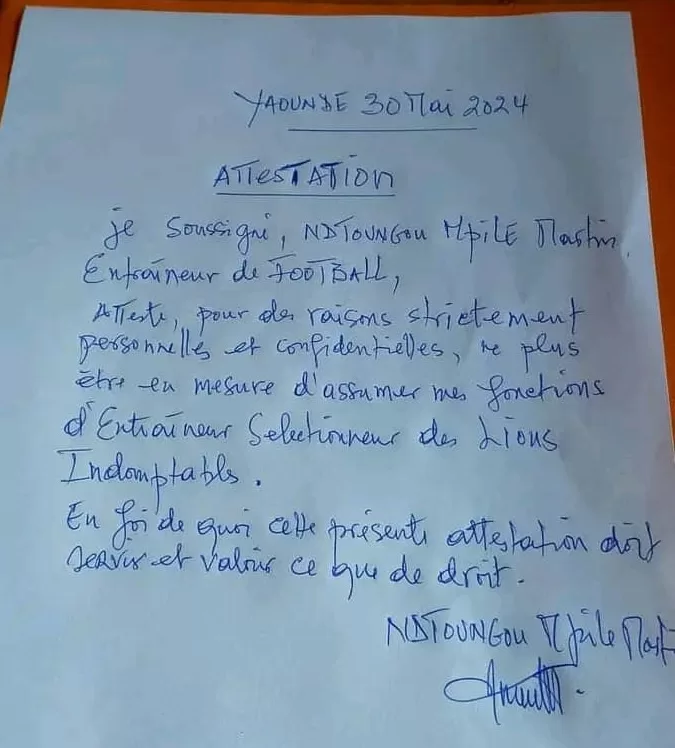 YAOUNDE 30 Mai 2024
ATTESTATION
je soussigné, NDTOUNGOU MpilE Martin,
Entraîneur de FOOTBALL,
Atteste, pour des raisons strictement
personnelles et confidentielles, ne plus
être en mesure d'assumer mes fonctions
d'Entraîneur Selectionneur des Lions
Indomptables.
En foi de quoi cette présente attestation doit
servir et valoir ce que de droit.
NDTOUNGOU Mpile Marti